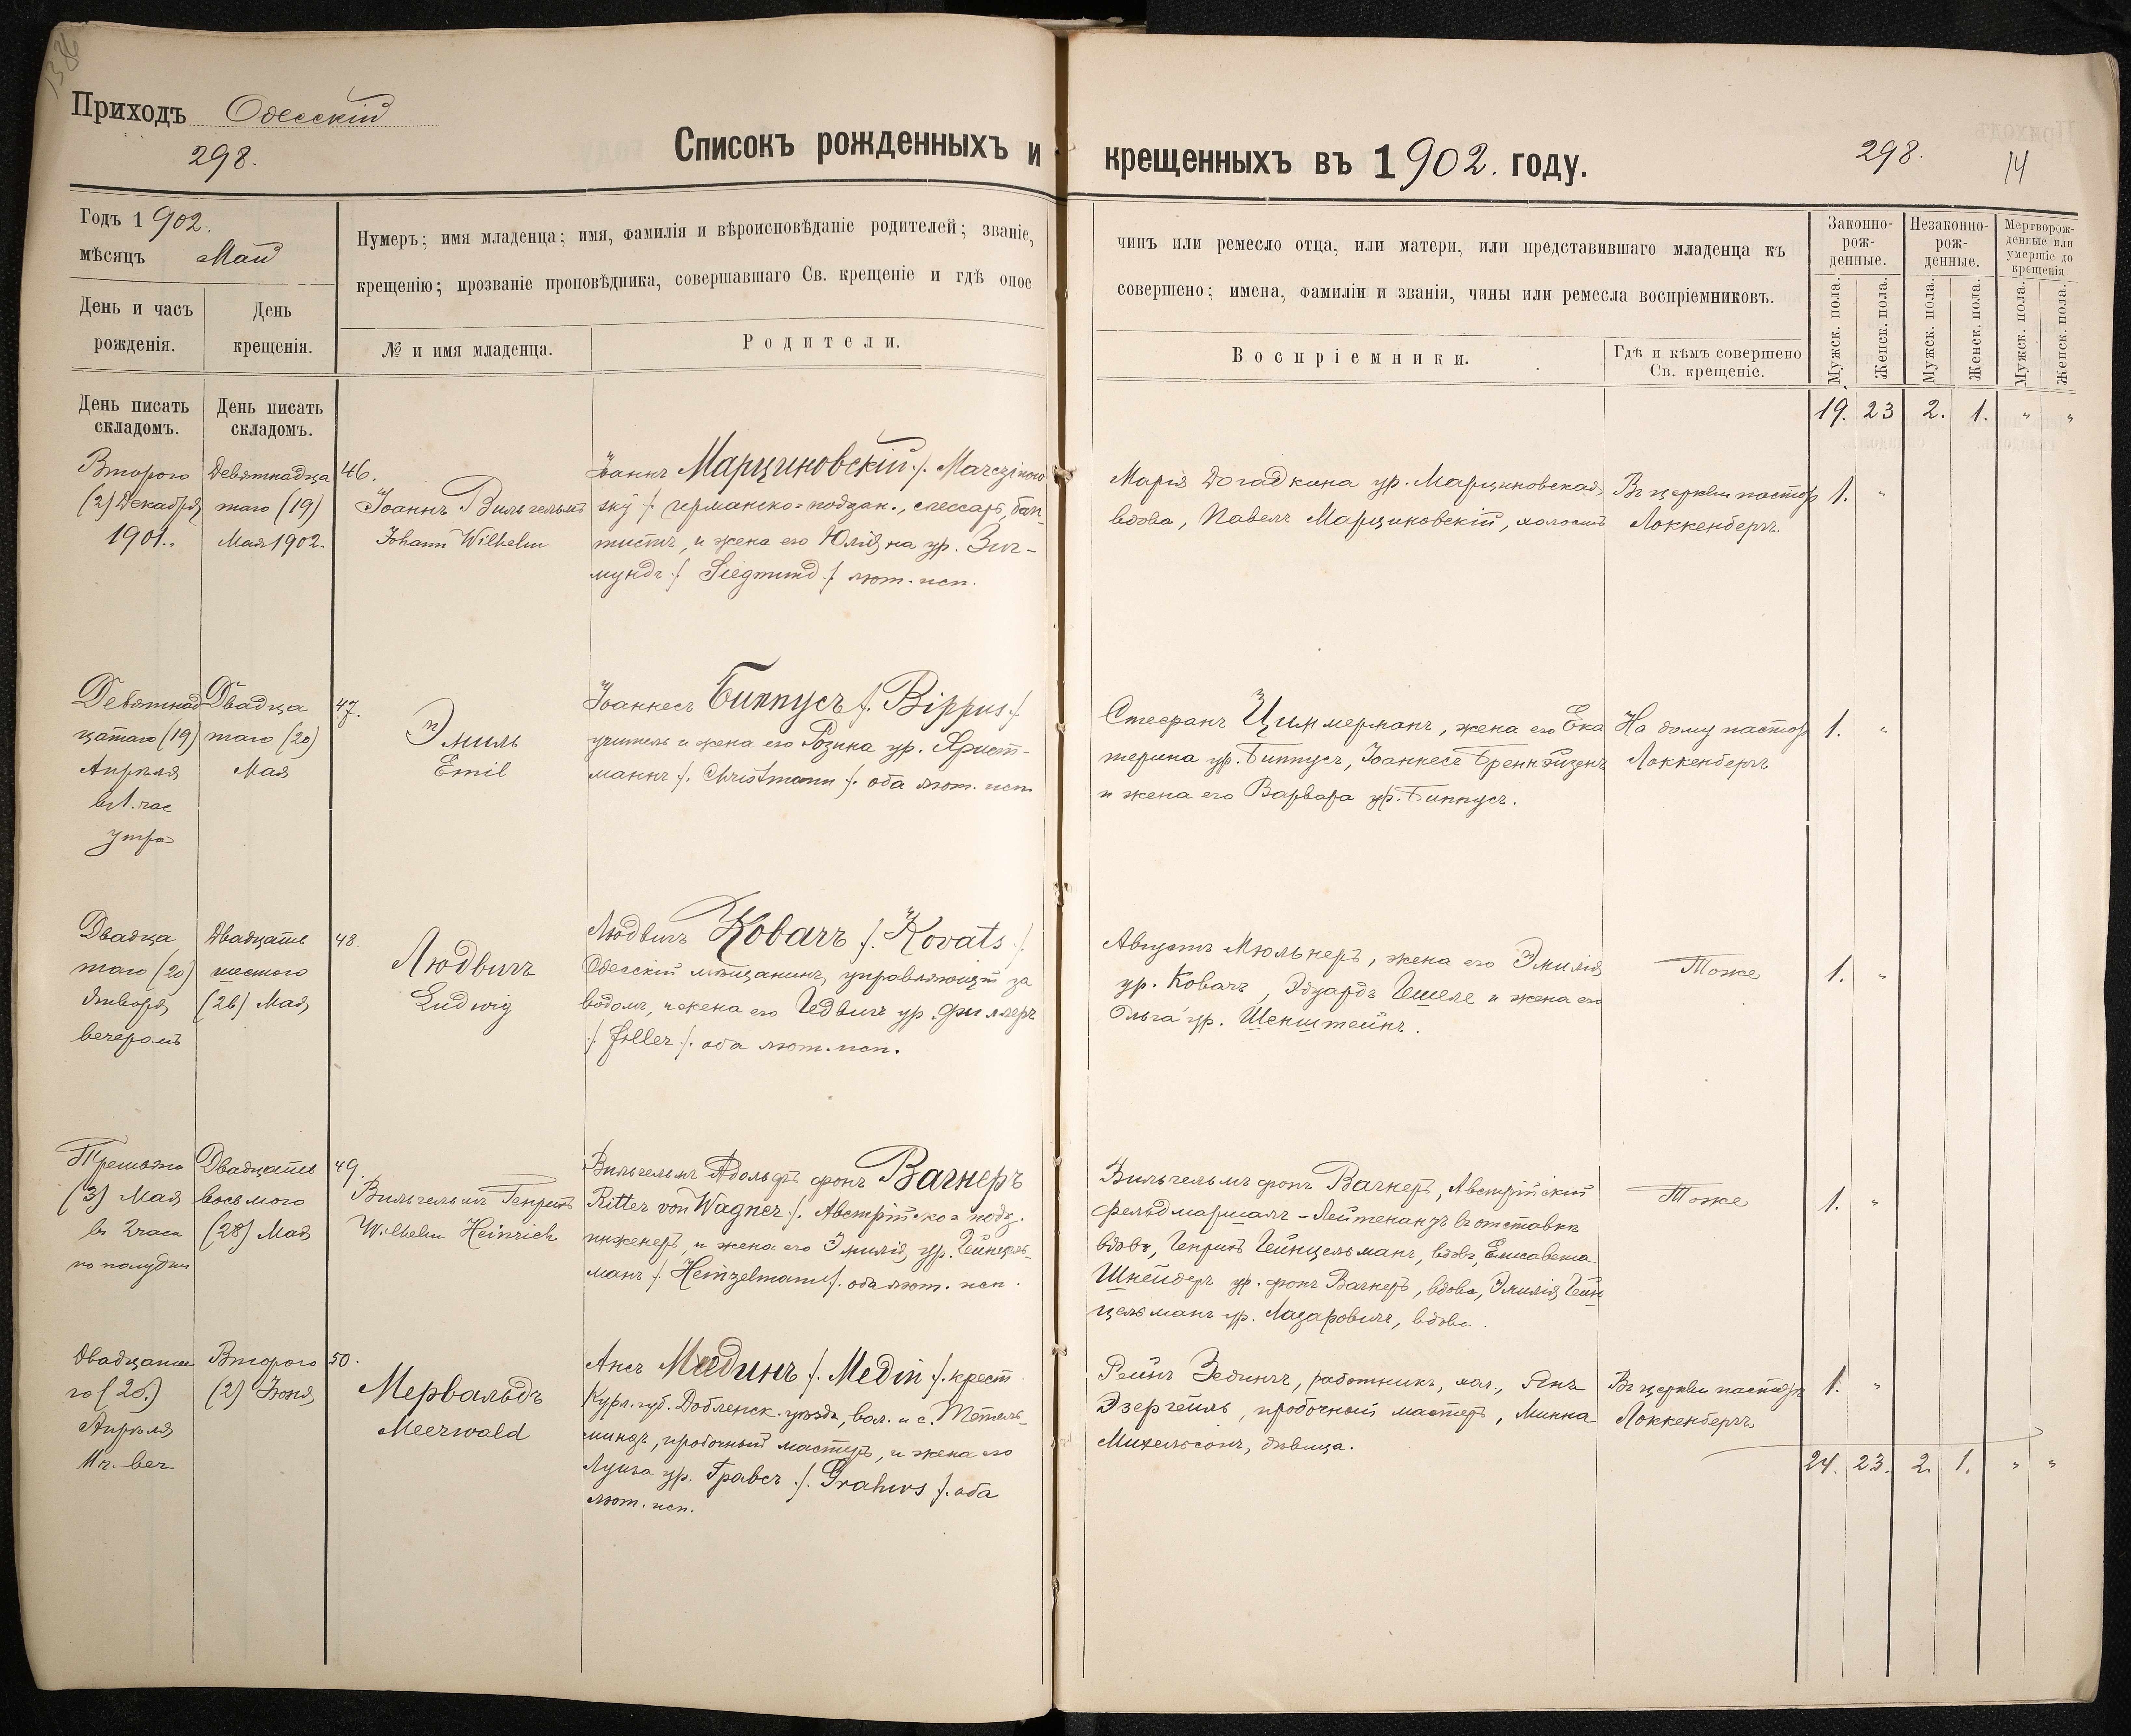 Приходъ Одесскій
298.
Списокъ рожденныхъ и крещенныхъ въ 1902. году.
298.
14
Годъ 1902.
мѣсяцъ Май
День и часъ рожденія.
День крещенія.
Нумеръ; имя младенца; имя, фамилія и вѣроисповѣданіе родителей; званіе,
крещенію; прозваніе проповѣдника, совершавшаго Св. крещеніе и гдѣ оное
№ и имя младенца.
Родители.
чинъ или ремесло отца, или матери, или представившаго младенца къ
совершено; имена, фамиліи и званія, чины или ремесла воспріемниковъ.
Воспріемники.
Гдѣ и кѣмъ совершено
Св. крещеніе.
Законно-
рож-
денные.
Незаконно-
рож-
денные.
Мертворож-
денные или
умершіе до
крещенія
Мужск. пола.
Женск. пола.
Мужск. пола.
Женск. пола.
Мужск. пола.
Женск. пола.
День писать
складомъ.
День писать
складомъ.
19. 23 2. 1. " "
Второго
(2) Декабря
1901.
Девятнадца
таго (19)
Мая 1902.
46.
Іоаннъ Вильгельмъ
Johann Wilhelm
Іоаннъ Марциновскій /. Marczinow
sky /. германско-поддан., слесарь, бап-
тистъ, и жена его Юліяна ур. Зиг-
мундъ /. Siegmund /. лют. исп.
Марія Догадкина ур. Марциновская,
вдова, Павелъ Марциновскій, холостъ
Въ церкви пастор
Локкенбергъ
1. "
Девятнад
цатаго (19)
Апрѣля
въ 1. час
утра
Двадца
таго (20)
Мая
47.
Эмиль
Emil
Іоаннесъ Биппусъ /. Bippus /.
учитель и жена его Розина ур. Христ-
маннъ /. Christmann /. оба лют. исп.
Стефанъ Циммерманъ, жена его Ека
терина ур. Биппусъ, Іоаннесъ Бреннэйзенъ
и жена его Варвара ур. Биппусъ.
На дому пастор
Локкенбергъ
1. "
Двадца
таго (20)
Января
вечеромъ
Двадцать
шестого
(26) Мая
48.
Людвигъ
Ludwig
Людвигъ Ковачъ /. Kovats /.
Одесскій мѣщанинъ, управляющій за
водомъ, и жена его Гедвигъ ур. Филлеръ
/. Filler /. оба лют. исп.
Августъ Мюльнеръ, жена его Эмилія
ур. Ковачъ, Эдуардъ Гешеле и жена его
Ольга ур. Шенштейнъ.
Тоже
1. "
Третьяго
(3) Мая
въ 2 часа
по полудни
Двадцать
восьмого
(28) Мая
49.
Вильгельмъ Генрихъ
Wilhelm Heinrich
Вильгельмъ Адольфъ фонъ Вагнеръ
Ritter von Wagner /. Австрійско-подд.
инженеръ, и жена его Эмилія, ур. Гейнцель-
манъ /. Heinzelmann /. оба лют. исп.
Вильгельмъ фонъ Вагнеръ, Австрійскій
фельдмаршалъ-Лейтенантъ въ отставкѣ
вдовъ, Генрихъ Гейнцельманъ, вдовъ, Елисавета
Шнейдеръ ур. фонъ Вагнеръ, вдова, Эмилія Гейн
цельманъ ур. Лазаровичъ, вдова.
Тоже
1. "
Двадцата
го (20.)
Апрѣля
11 ч. веч
Второго
(2) Іюня
50.
Мервальдъ
Meerwald
Ансъ Мединъ /. Medin /. крест.
Курл. губ. Добленск. уѣзда, вол. и с. Метель-
миндъ, пробочный мастеръ, и жена его
Луиза ур. Гравсъ /. Grahws /. оба
лют. исп.
Рейнъ Зединъ, работникъ, хол., Янъ
Эзергейль, пробочный мастеръ, Минна
Михельсонъ, дѣвица.
Въ церкви пасторъ
Локкенбергъ
1. "
24. 23. 2. 1. " "